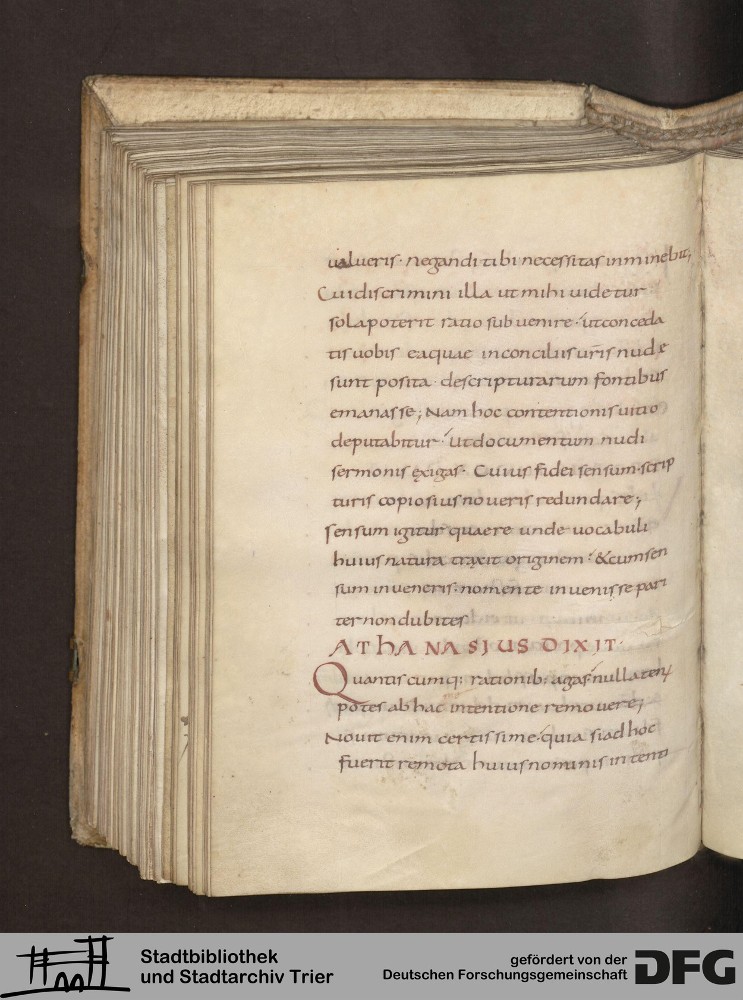 ualueris· negandi tibi necessitas inminebit;
Cui discrimini illa ut mihi uidetur
sola poterit ratio subuenire· ut conceda
tis uobis ea quae in conciliis uris nude
sunt posita· de scripturarum fontibus
emanasse; Nam hoc contentionis uitio
deputabitur· ut documentum nudi
sermonis exigas· Cuius fidei sensum scrip
turis copiosius noueris redundare;
sensum igitur quaere unde uocabuli
huius natura traxit originem· & cum sen
sum inueneris· nomen te inuenisse pari
ter non dubites
ATHANASIUS DIXIT·
Quantis cumq: rationib: agas· nullaten;
potes ab hac intentione remouere;
Nouit enim certissime· quia si adhoc
fuerit remota huius nominis intenti
Stadtbibliothek
und Stadtarchiv Trier
gefördert von der
Deutschen Forschungsgemeinschaft
DFG